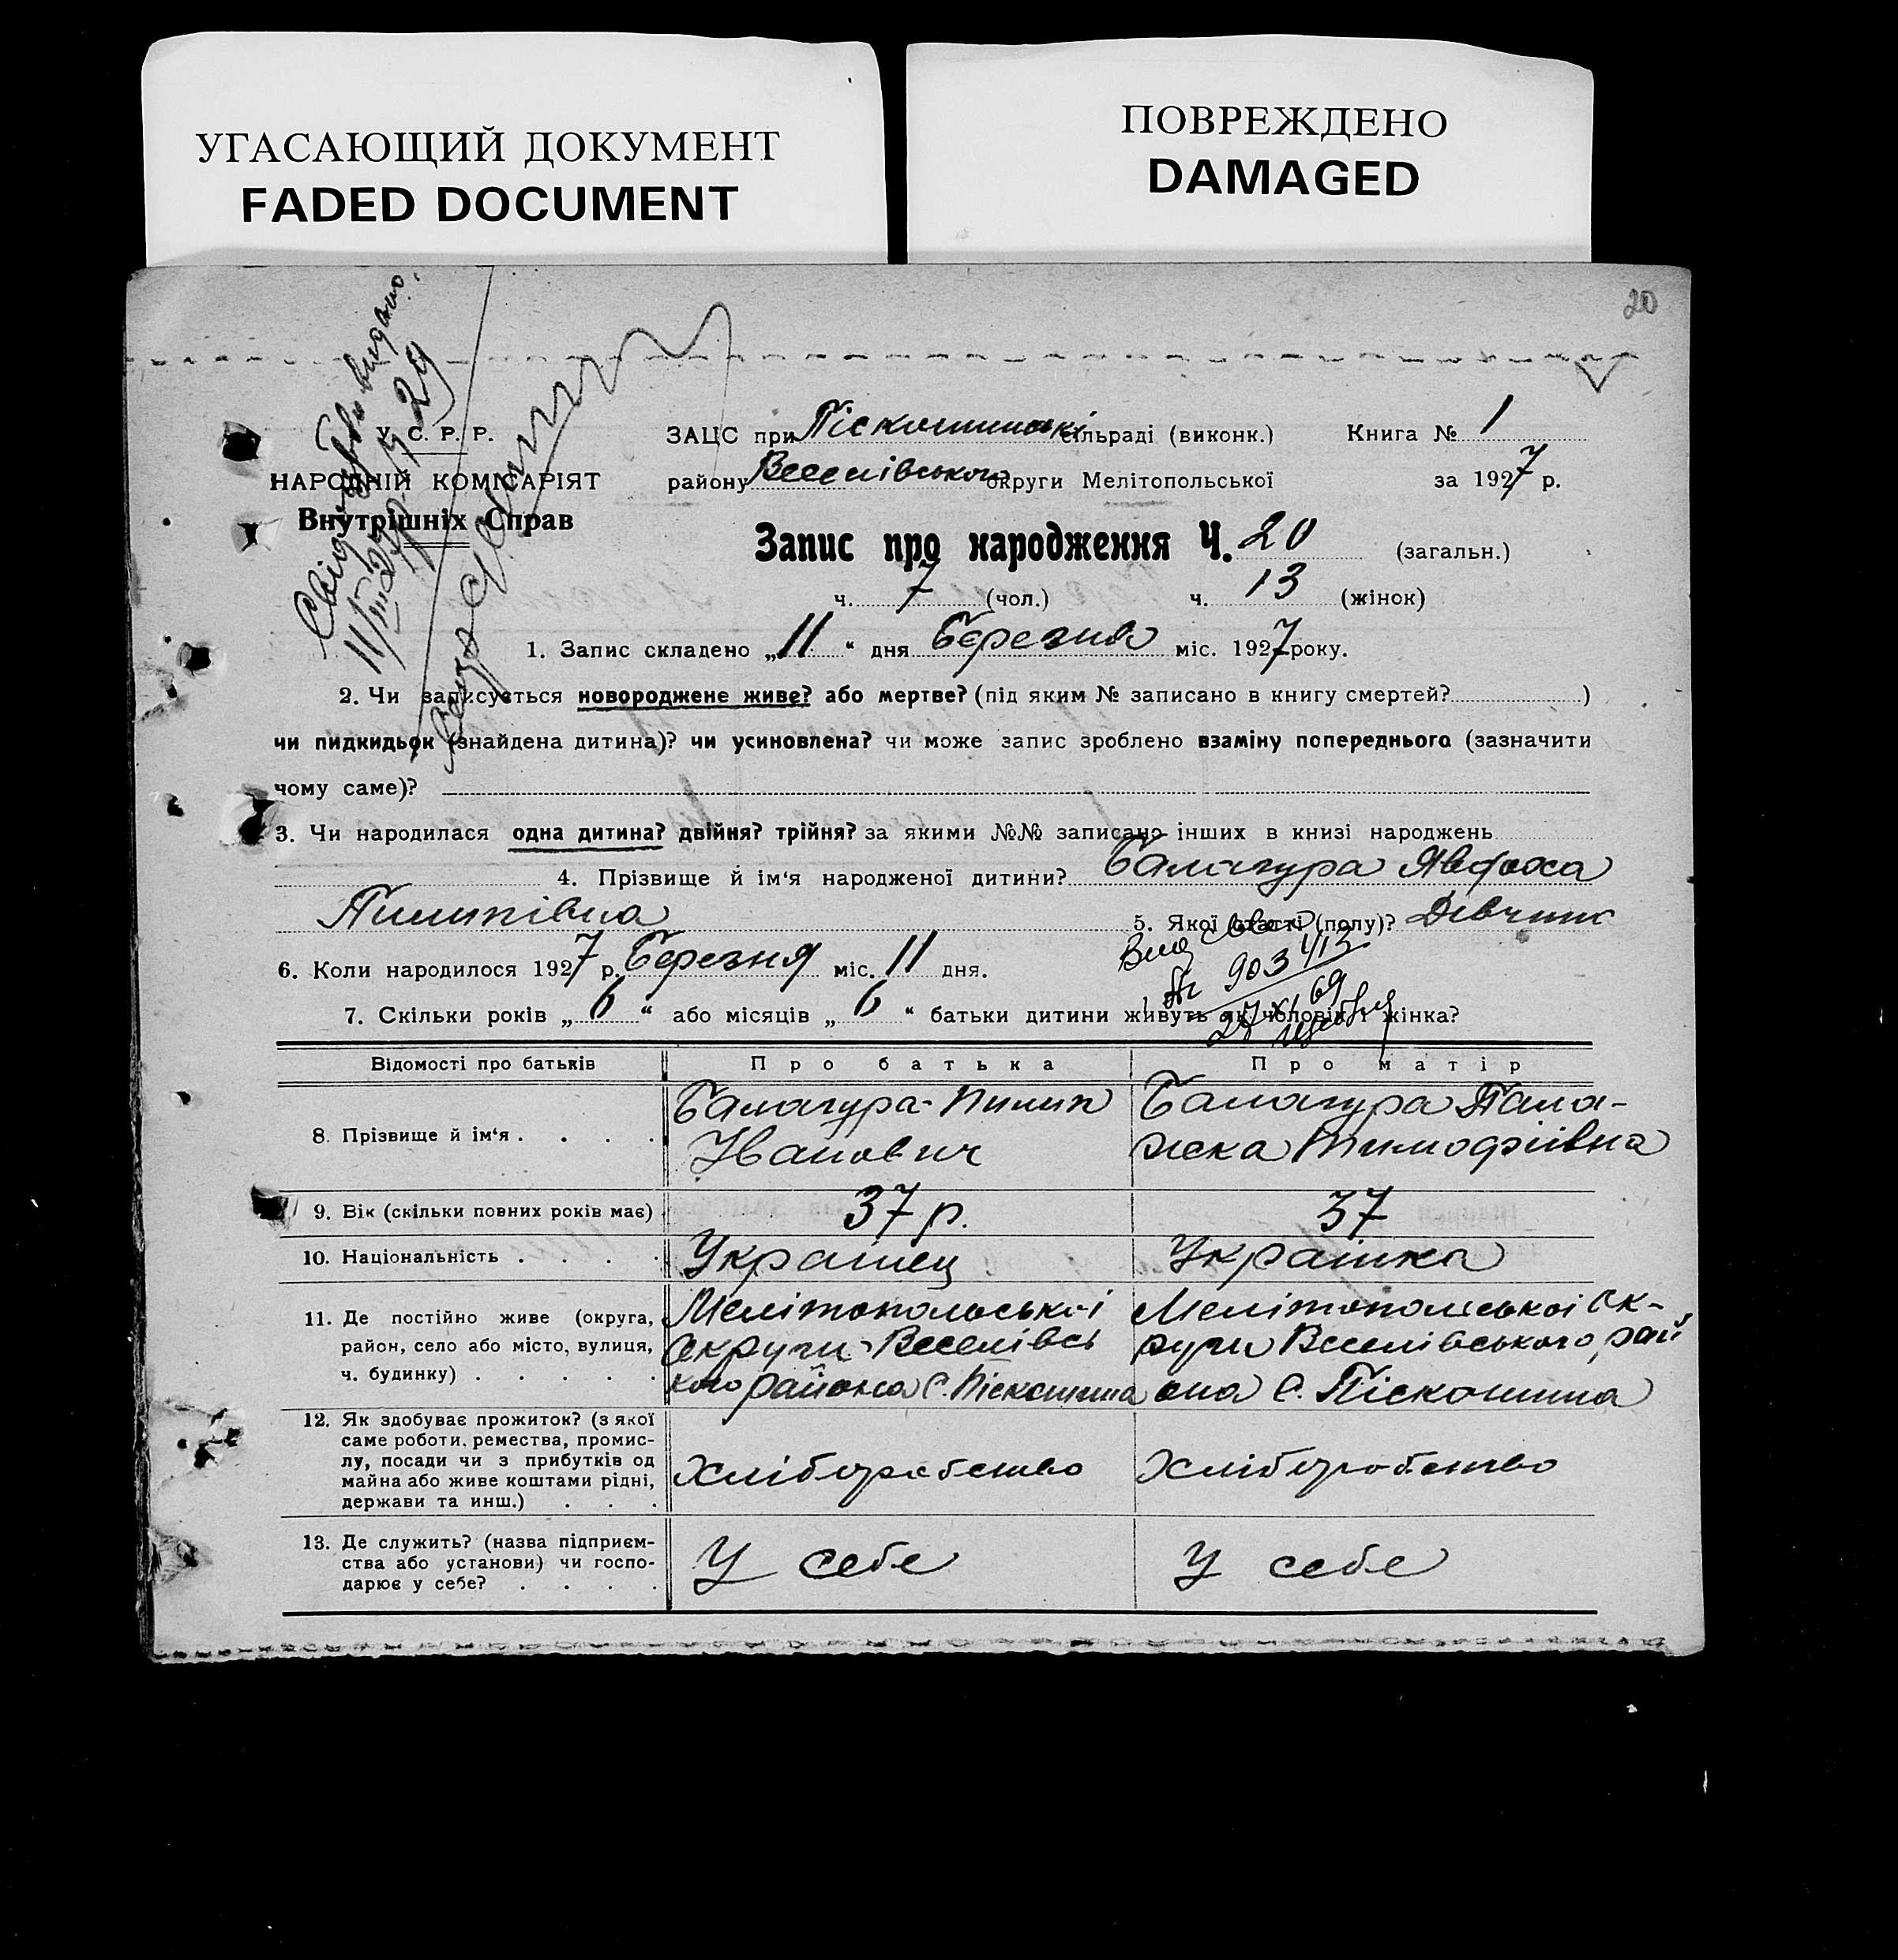 УГАСАЮЩИЙ ДОКУМЕНТ
FADED DOCUMENT
ПОВРЕЖДЕНО
DAMAGED
20
Свідоцтво видано
11/III 27 р.
29
У. С. Р. Р.
НАРОДНІЙ КОМІСАРІЯТ
Внутрішніх Справ
ЗАЦС при Піскошинські сільраді (виконк.) Книга № 1
району Веселівського округи Мелітопольської за 1927 р.
Запис про народження Ч. 20 (загальн.)
ч. 7 (чол.) ч. 13 (жінок)
1. Запис складено „11“ дня Березня міс. 1927 року.
2. Чи записується новороджене живе? або мертве? (під яким № записано в книгу смертей? )
чи пидкидьок (знайдена дитина)? чи усиновлена? чи може запис зроблено взаміну попереднього (зазначити
чому саме)?
3. Чи народилася одна дитина? двійня? трійня? за якими №№ записано інших в книзі народжень
4. Прізвище й ім‘я народженої дитини? Балагура Явдоха
Пилипівна 5. Якої статті (полу)? Дівчинк
6. Коли народилося 1927 р. Березня міс. 11 дня.
903413
27 XI 69
7. Скільки років „6“ або місяців „6“ батьки дитини живуть як чоловік і жінка?
Відомості про батьків Про батька Про матір
8. Прізвище й ім‘я . . . . Балагура Пилип Іванович Балагура Палажка Тимофіівна
9. Вік (скільки повних років має) 37 р. 37
10. Національність . . . . Украінец Украінка
11. Де постійно живе (округа, Мелітопольськоі Мелітопольськоі Ок-
район, село або місто, вулиця, Округи Веселівсь руги Веселівського рай
ч. будинку) . . . . . кого района С. Піскошина она С. Піскошина
12. Як здобуває прожиток? (з якої
саме роботи, ремества, промис-
лу, посади чи з прибутків од Хліборобство Хліборобство
майна або живе коштами рідні,
держави та инш.) . . .
13. Де служить? (назва підприєм-
ства або установи) чи госпо- У себе У себе
дарює у себе? . . . .